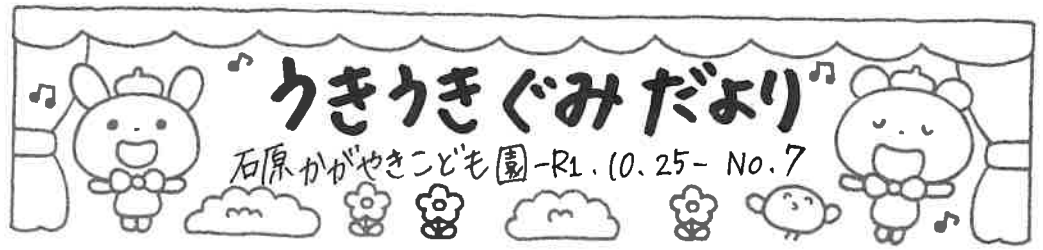 うきうきぐみだより
石原かがやきこども園-R1.10.25- No.7